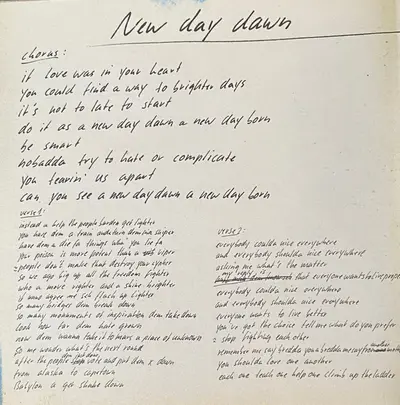 New day dawn
chorus:
if love was in your heart
you could find a way to brighter days
it's not to late to start
do it as a new day dawn a new day born
be smart
nobadda try to hate or complicate
you tearin' us apart
can you see a new day dawn a new day born
verse 1:
instead a help the people burden get lighter
you have dem a train undetain
have dem a die fa things what you live fa
your poison is more potent than a viper
people don't make that destroy your cypher
so we a big up all the freedom fighter
who a move righter and a shine brighter
if unno agree me sch flash up lighter
so many bridges dem break down
so many monuments of inspiration dem take down
look how far dem hate grown
now dem wanna take it to mars a piece of unknown
so me wonder what's the next round
after the people dem just dem vote and put dem x down
from alaska to capetown
Babylon a get shake down
verse 2:
everybody coulda nice everywhere
and everybody shoulda nice everywhere
asking me what's the matter
my reply is that everyone wants to live proper
everybody coulda nice everywhere
and everybody shoulda nice everywhere
everyone wants to live better
you've got the choice tell me what do you prefer
stop fighting each other
remember me say bredda you a bredda me say another
you shoulda love one another
each one teach one help one climb up the ladder